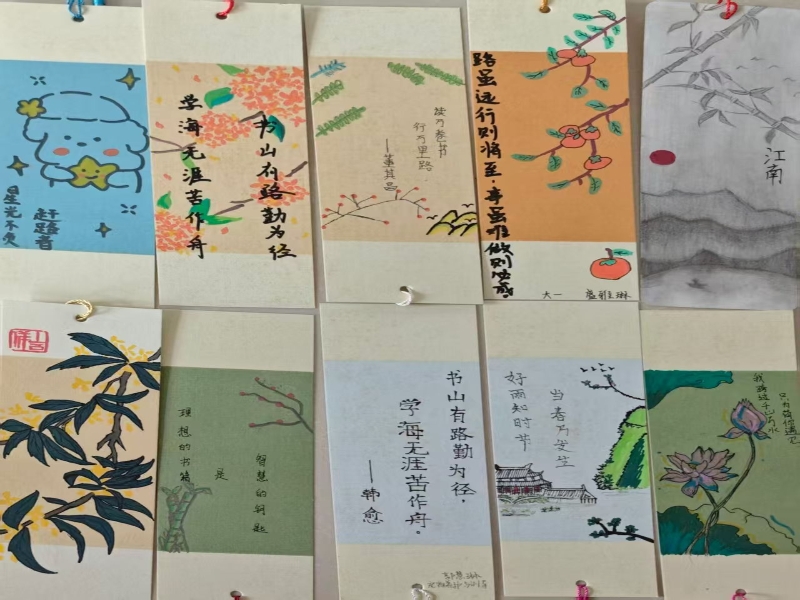 星光不负
赶路者
书山有路勤为径
学海无涯苦作舟
读万卷书
行万里路
——董其昌
路虽远行则将至，事虽难做则必成。
大一
江南
理想的书籍
是
智慧的钥匙
书山有路勤为径，
学海无涯苦作舟。
——韩愈
好雨知时节
当春乃发生